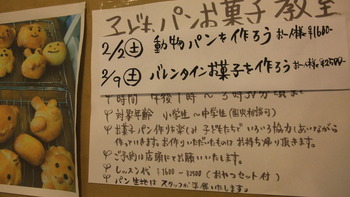 子ども パンお菓子教室
2/2(土) 動物パンを作ろう お一人様¥1600-
2/9(土) バレンタインお菓子を作ろう お一人様
時間 午後1時〜3時30分頃まで
対象年齢 小学生〜中学生(個人相談可)
お菓子パン作りを楽しみ 子どもたちでいろいろ協力しあいながら
作っていきます。お作りいただいたものは お持ち帰り頂きます。
ご予約は店頭にてお願いいたします。
レッスン代 ¥1600〜 (おやつセット付)
パン生地は スタッフが準備いたします。